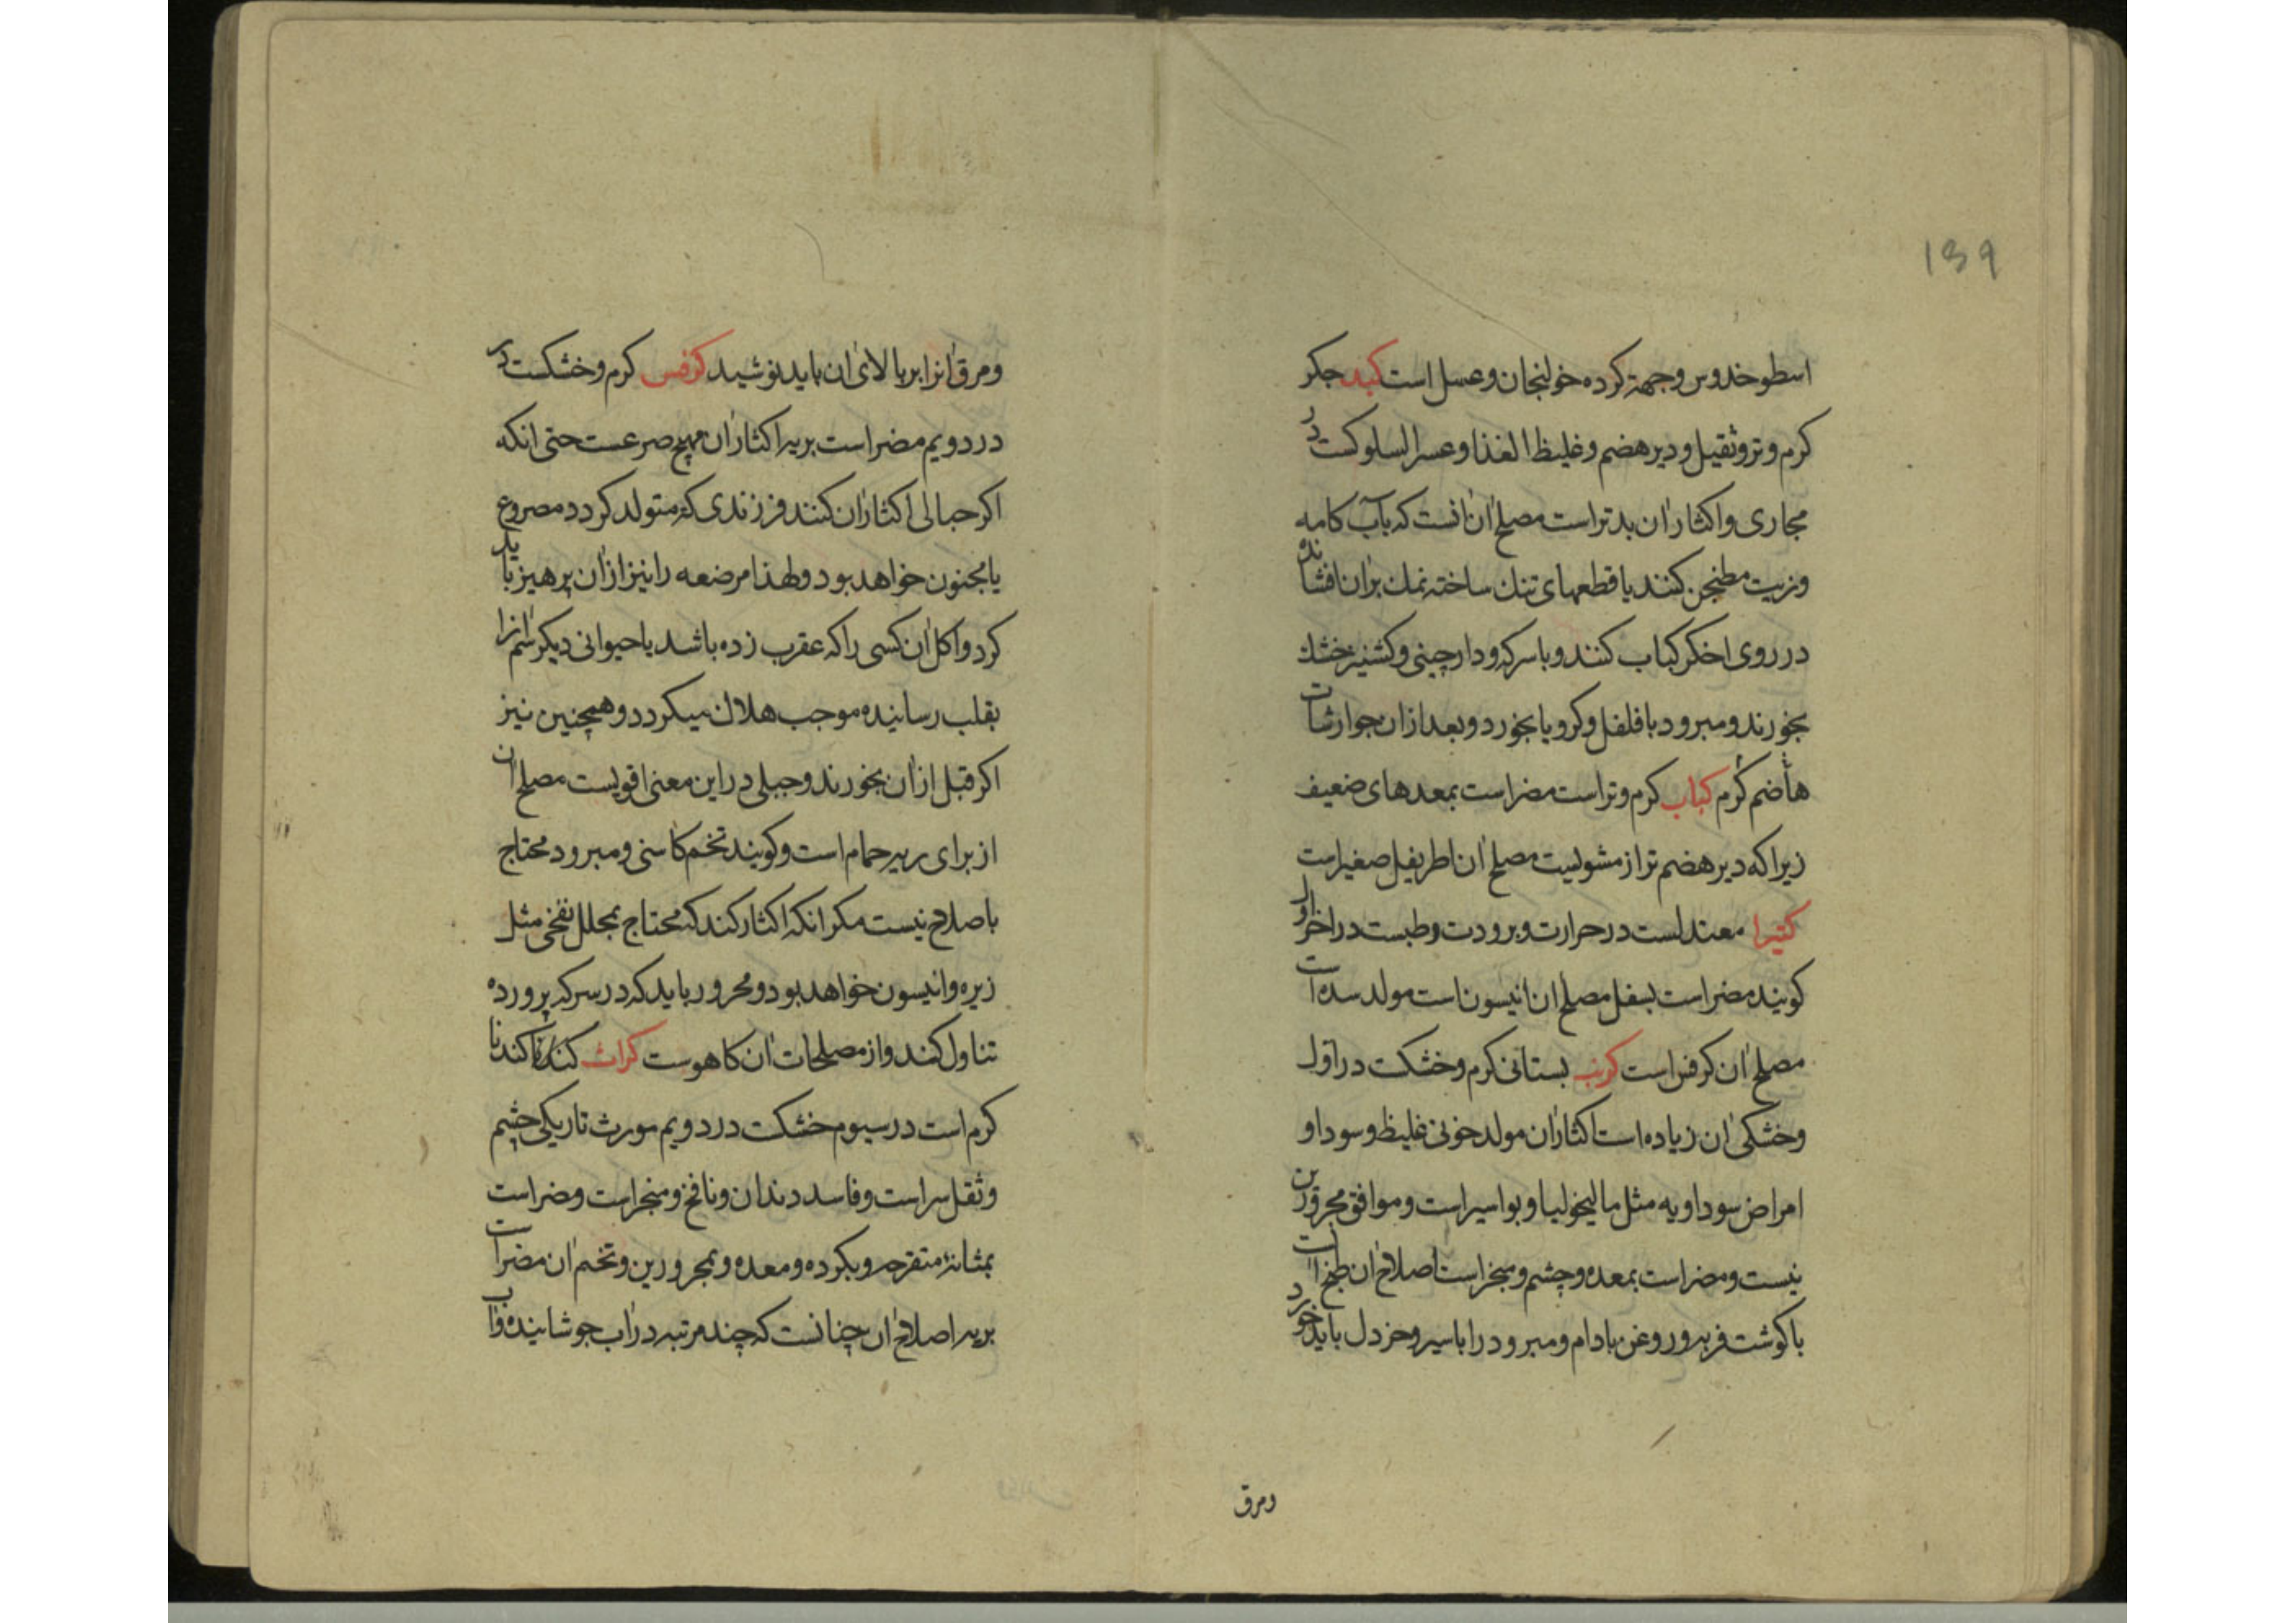 139
اسطوخدوس وجهة کرده خولنجان وعسل است کبد جکر
کرم وتر وثقیل ودیر هضم وغلیظ الغذا وعسر السلوکست در
مجاری واکثار ان بدتر است مصلح ان انست که بآب کامه
وزیت مطنجن کنند یا قطعهای تنك ساخته نمك بران افشانده
در روی اخکر کباب کنند وبا سرکه ودارچینی وکشنیز خشك
بخورند ومبرود با فلفل وکرویا بخورد وبعد ازان جوارشات
هاضم کرم کباب کرم وتر است مضر است بمعدهای ضعیف
زیرا که دیر هضم تر از مشویست مصلح ان اطریفل صغیر است
کتیرا معتدلست در حرارت وبرودت ورطبست در اخر اول
کویند مضر است بسفل مصلح ان انیسون است مولد سده است
مصلح ان کرفس است کرنب بستانی کرم وخشکست در اول
وخشکی ان زیاده است اکثار ان مولد خونی غلیظ وسودا و
امراض سوداویه مثل مالیخولیا وبواسیر است وموافق محرورین
نیست ومضر است بمعده وچشم ومبخر است اصلاح ان طبخ است
با کوشت فربه وروغن بادام ومبرود را با سیر وخردل باید خورد
ومرق
ومرق انرا بر بالای ان باید نوشید کرفس کرم وخشکست در
در دویم مضر است بریه اکثار ان مهیج صرعست حتی انکه
اکر حبالی اکثار ان کنند فرزندی که متولد کردد مصروع
یا مجنون خواهد بود ولهذا مرضعه را نیز از ان پرهیز باید
کرد واکل ان کسی را که عقرب زده باشد یا حیوانی دیکر سم انرا
بقلب رسانیده موجب هلاك میکردد وهمچنین نیز
اکر قبل از ان بخورند وجبلی در این معنی اقویست مصلح ان
از برای ریه حمام است وکویند تخم کاسنی ومبرود محتاج
باصلاح نیست مکر انکه اکثار کند که محتاج بمحلل نفخی مثل
زیره وانیسون خواهد بود ومحرور باید که در سرکه پرورده
تناول کند واز مصلحات ان کاهوست کراث کندنا
کرم است در سیوم خشکست در دویم مورث تاریکی چشم
وثقل سر است وفاسد دندان ونافخ ومبخر است ومضر است
بمثانهٔ متقرحه وبکرده ومعده وبمحرورین وتخم ان مضر است
بریه اصلاح ان چنانست که چند مرتبه در اب جوشانیده واب